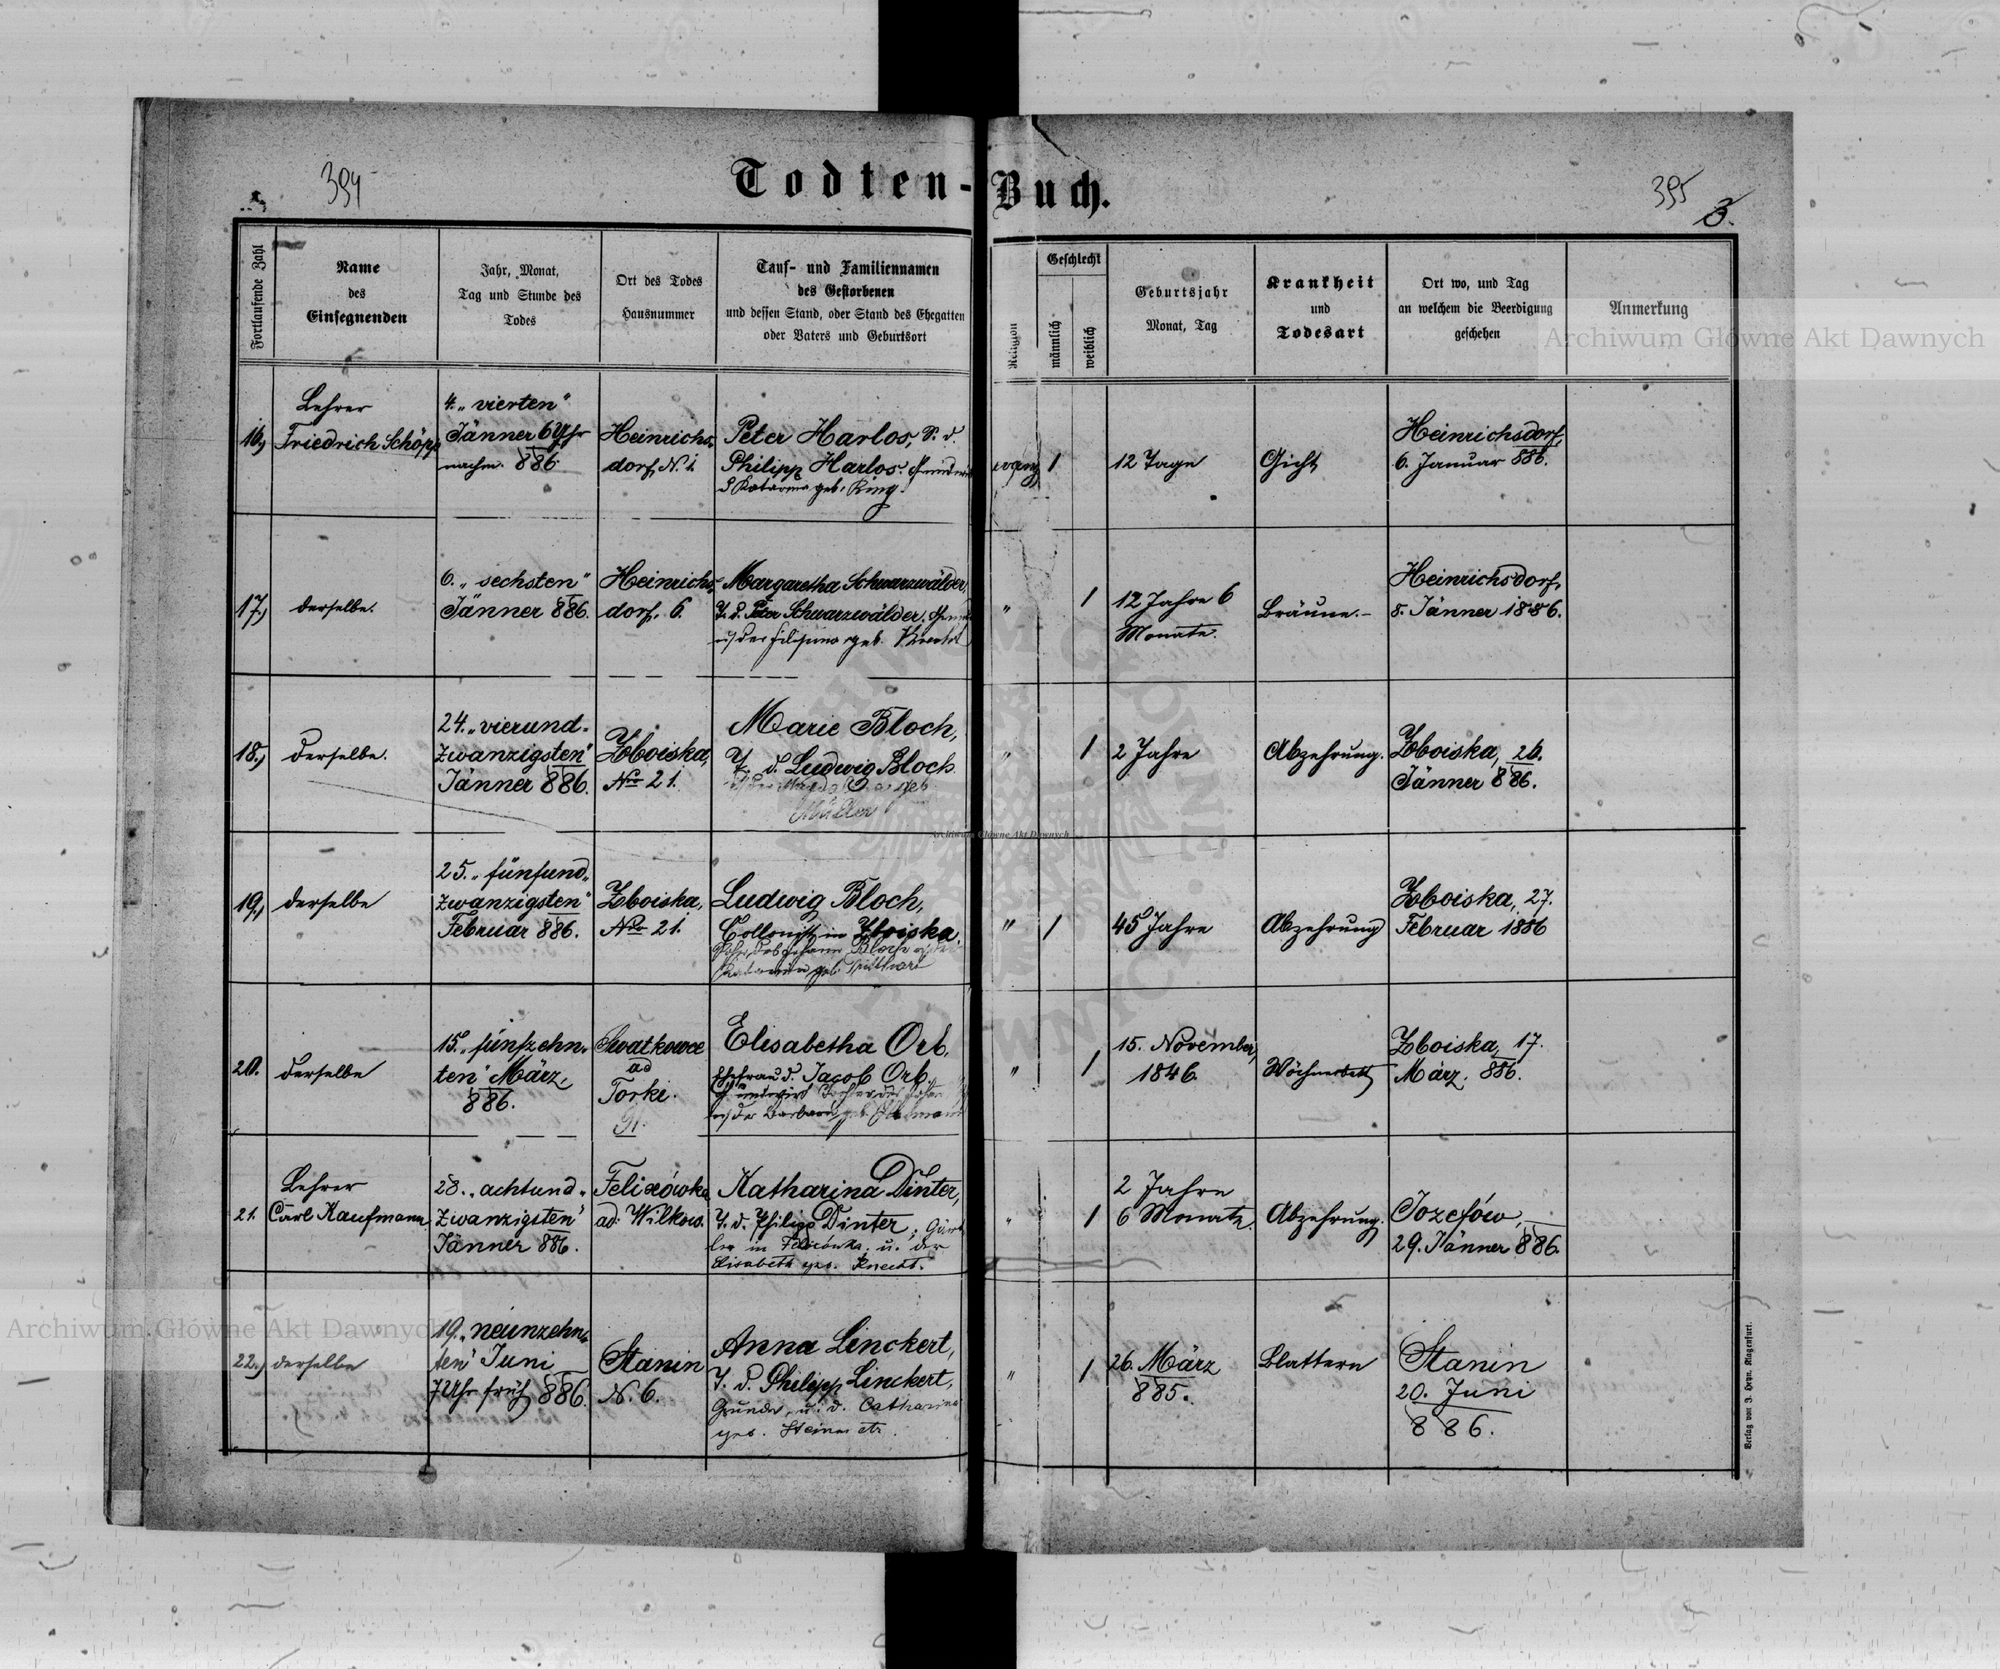 394
Todten-Buch.
395
3.
Fortlaufende Zahl
Name
des
Einsegnenden
Jahr, Monat,
Tag und Stunde des
Todes
Ort des Todes
Hausnummer
Tauf- und Familiennamen
des Gestorbenen
und dessen Stand, oder Stand des Ehegatten
oder Vaters und Geburtsort
Religion
Geschlecht
männlich
weiblich
Geburtsjahr
Monat, Tag
Krankheit
und
Todesart
Ort wo, und Tag
an welchem die Beerdigung
geschehen
Anmerkung
16.,
Lehrer
Friedrich Schöpp
4. „vierten“
Jänner 6 Uhr
nachm. 886.
Heinrichs-
dorf, N. 1.
Peter Harlos, S. d.
Philipp Harlos.
Katarina geb. King.
evang.
1
12 Tage
Gicht
Heinrichsdorf,
6. Januar 886.
17.,
derselbe.
6. „sechsten“
Jänner 886.
Heinrichs-
dorf, 6.
Margaretha Schwarzwälder,
T. d. Peter Schwarzwälder,
der Filipina geb.
"
1
12 Jahre 6
Monate.
Bräune.-
Heinrichsdorf,
8. Jänner 1886.
18.,
derselbe.
24. „vierund-
zwanzigsten“
Jänner 886.
Zboiska,
Nro 21.
Marie Bloch,
T. d. Ludwig Bloch
geb
Müller
"
1
2 Jahre
Abzehrung.
Zboiska, 26.
Jänner 886.
19.,
derselbe
25. „fünfund-
zwanzigsten“
Februar 886.
Zboiska,
Nro 21.
Ludwig Bloch,
Collonist in Zboiska.
Sohn des Johann Bloch
Katarina geb.
"
1
45 Jahre
Abzehrung
Zboiska, 27.
Februar 1886
20.
derselbe
15. „fünfzehn-
ten“ März,
886.
Swatkowce
ad
Torki.
Elisabetha Orb,
Ehefrau d. Jacob Orb,
der Barbara geb.
"
1
15. November,
1846.
Wöchnerbett
Zboiska, 17.
März. 886.
21.
Lehrer
Carl Kaufmann
28. „achtund-
zwanzigsten“
Jänner 886.
Felixówka
ad: Wilkow.
Katharina Dinter,
T. d. Philipp Dinter,
in Felixówka. u. der
Elisabeth geb. Knecht.
"
1
2 Jahre
6 Monate.
Abzehrung.
Jozefów,
29. Jänner 886.
22.,
derselbe
19. „neunzehn-
ten“ Juni
7 Uhr früh 886.
Stanin
N. 6.
Anna Linckert,
T. d. Philipp Linckert,
Grundw. u. d. Catharina
geb.
"
1
26. März
885.
Blattern
Stanin
20. Juni
886.
Verlag von J. Heyn, Klagenfurt.
Archiwum Główne Akt Dawnych
Archiwum Główne Akt Dawnych
Archiwum Główne Akt Dawnych